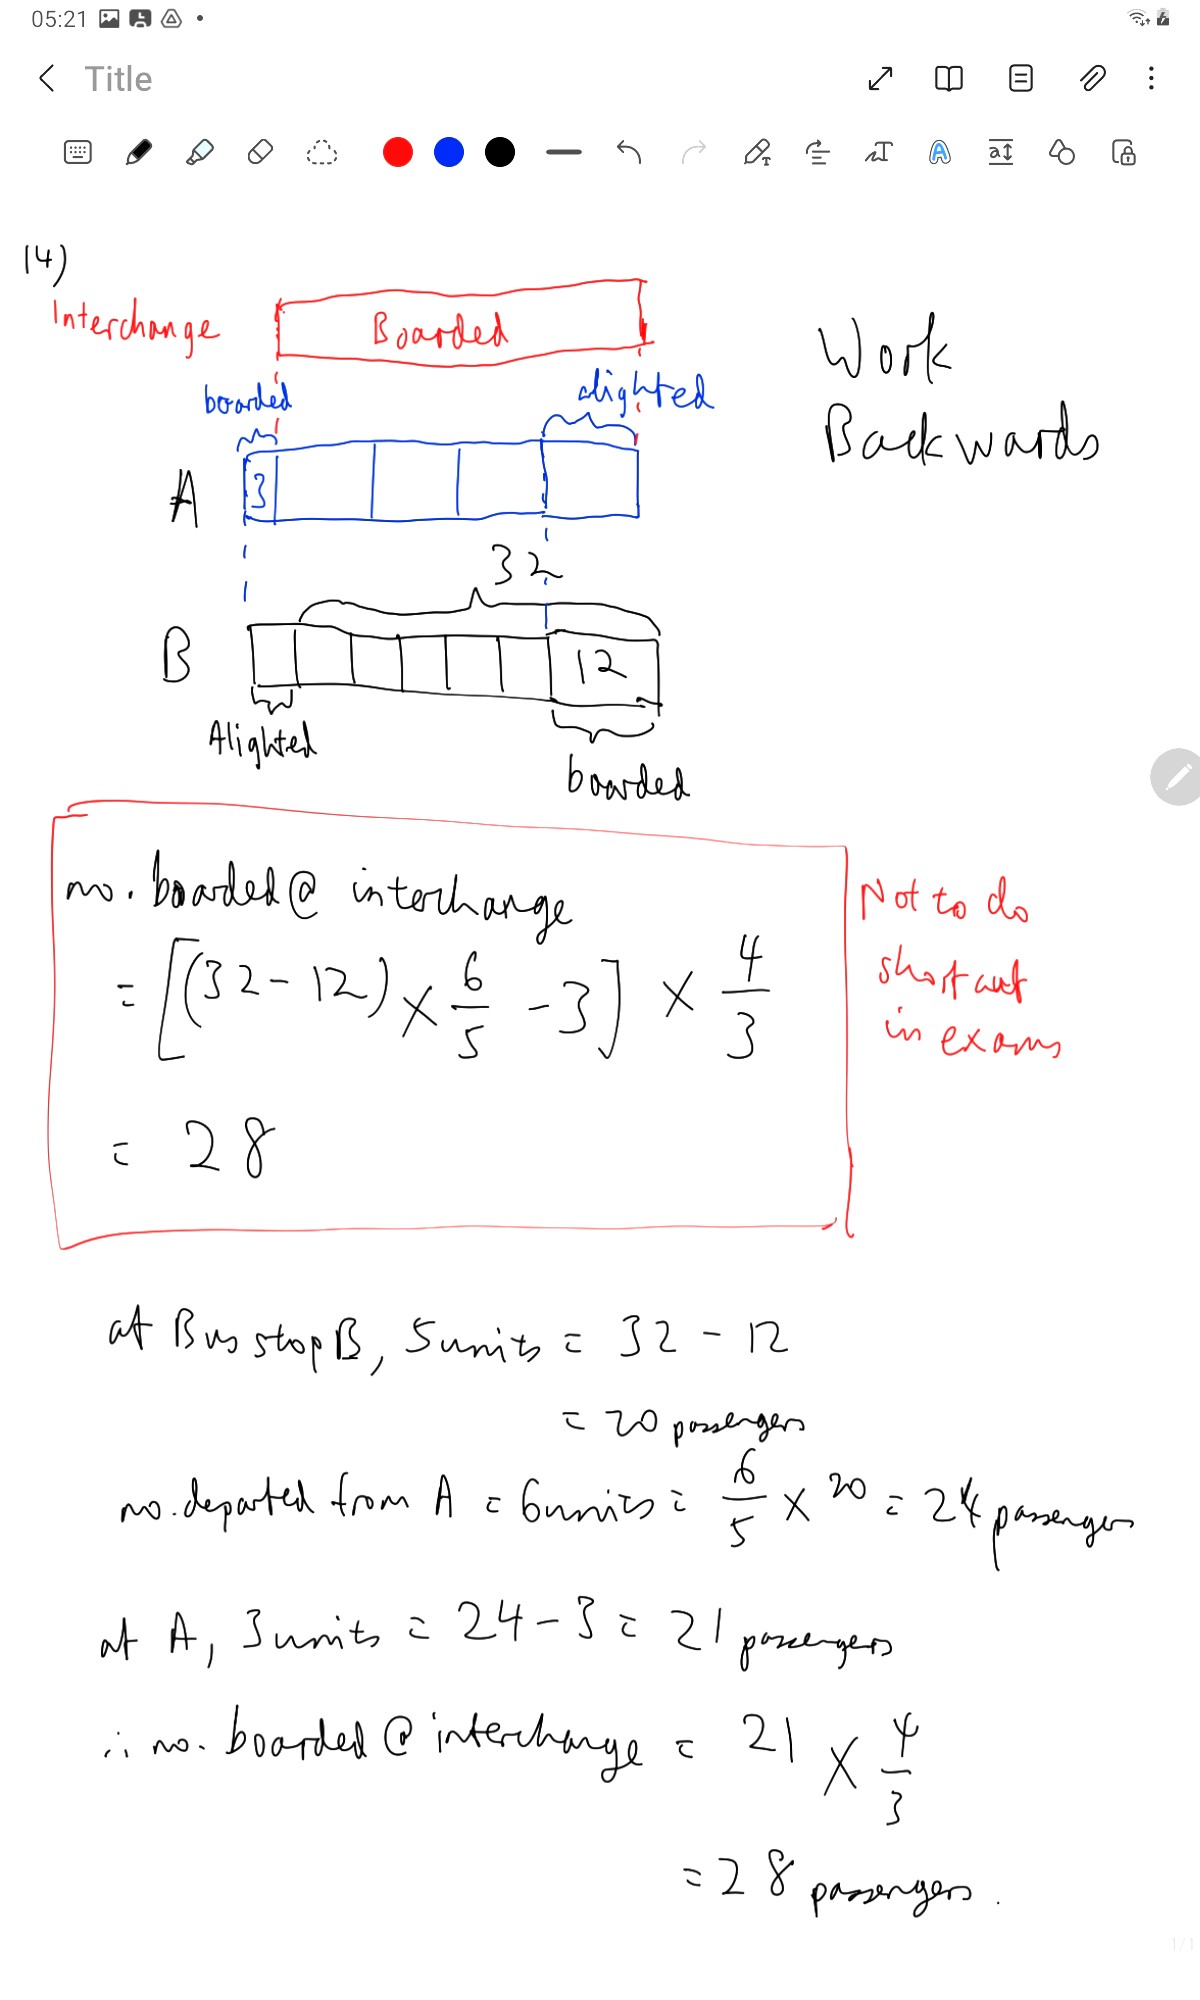 05:21
Title
14)
Interchange
Boarded
Work
Backwards
boarded
alighted
A
3
32
B
12
Alighted
boarded
no. boarded @ interchange
= [(32-12) × 6/5 - 3] × 4/3
= 28
Not to do
shortcut
in exams
at Bus stop B, 5 units = 32 - 12
= 20 passengers
no. departed from A = 6 units = 6/5 × 20 = 24 passengers
at A, 3 units = 24 - 3 = 21 passengers
∴ no. boarded @ interchange = 21 × 4/3
= 28 passengers.
1/1